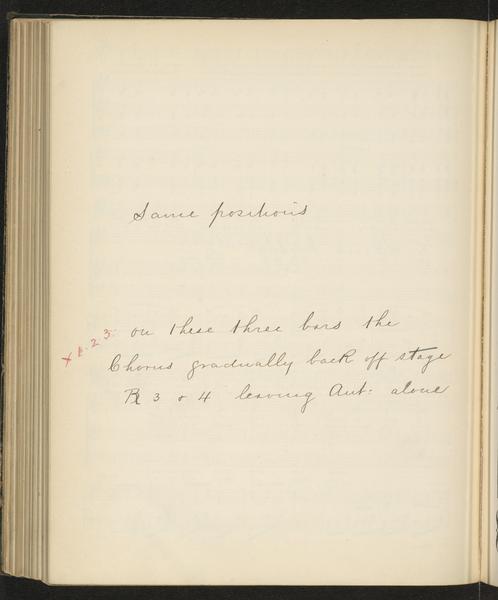 Same positions
x 1. 2 3. on these three bars the
Chorus gradually back off stage
R 3 & 4 leaving Ant: alone